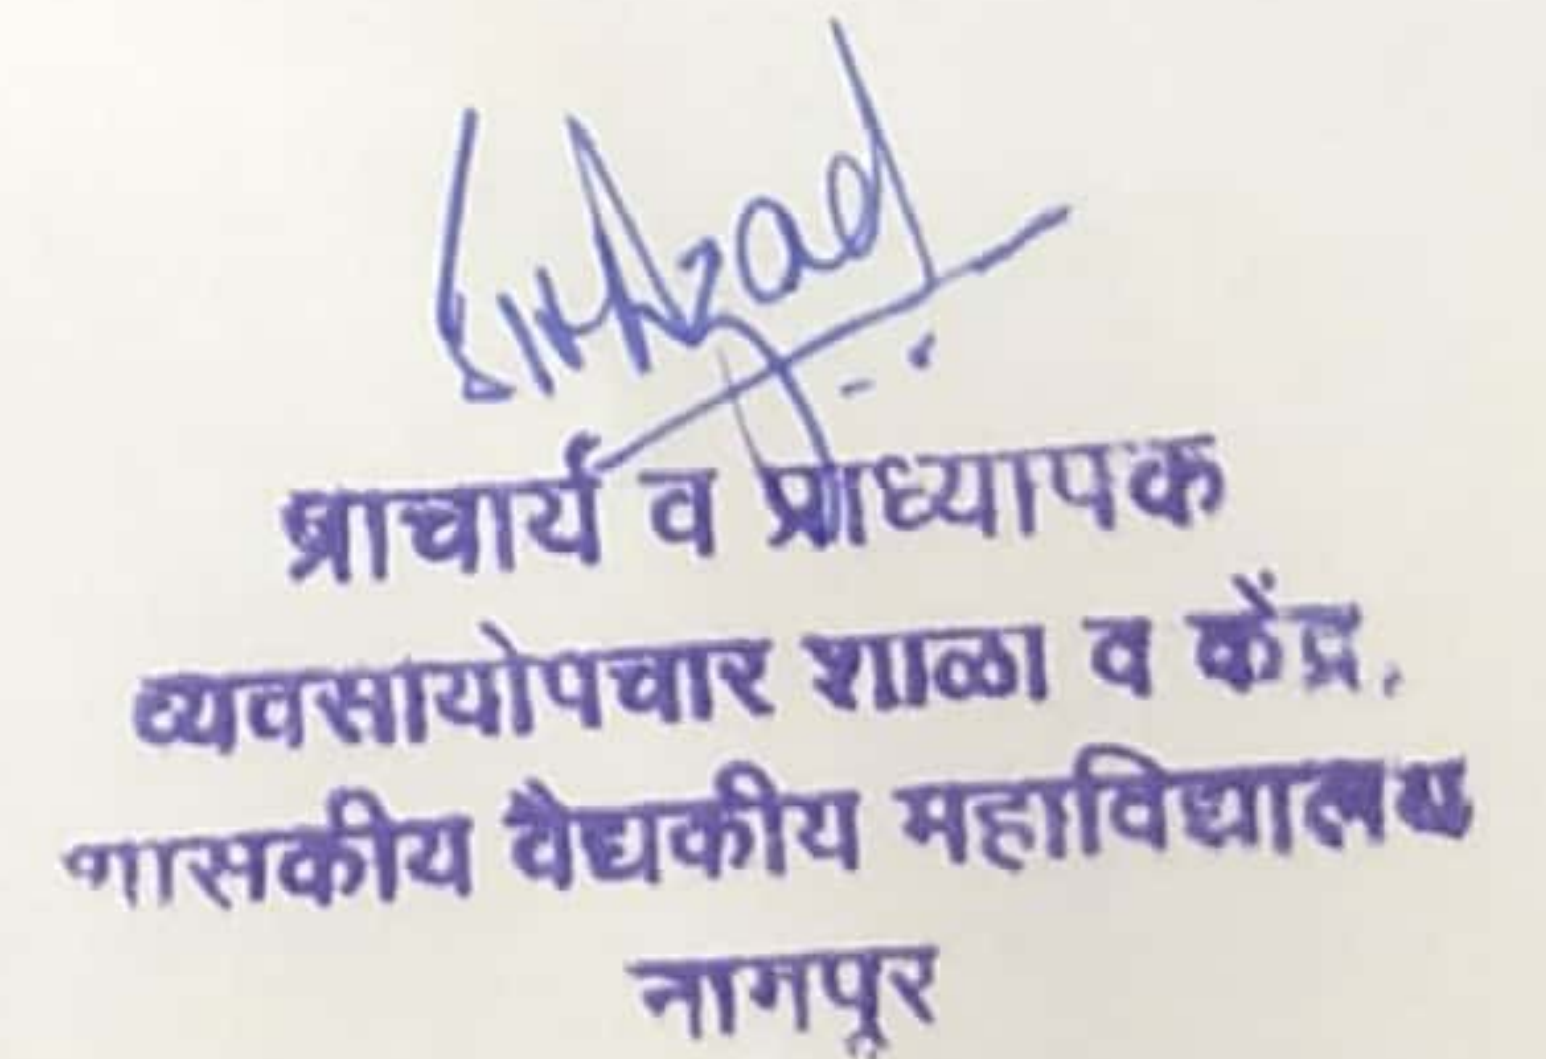 प्राचार्य व प्राध्यापक
व्यवसायोपचार शाळा व केंद्र.
शासकीय वैद्यकीय महाविद्यालय
नागपूर